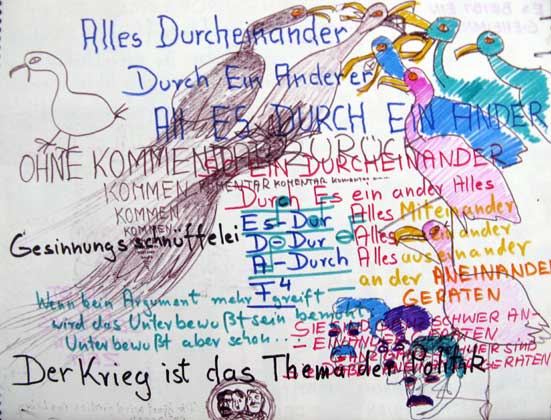 Alles Durcheinander
Durch Ein Anderer
All ES DURCH EIN ANDER
OHNE KOMMENTAR ZURÜCK
SO EIN DURCHEINANDER
KOMMEN KOMENTAR KOMENTAR
KOMMEN
KOMMEN
Durch Es ein ander Alles
Es-Dur
D-Dur
A-Durch
F4
Alles Miteinander
Alles einander
Alles auseinander
an der ANEINANDER
GERATEN
Gesinnungsschnüffelei
Wenn kein Argument mehr greift
wird das Unterbewußtsein bemüht
Unterbewußt aber schon...
SIE SIND SCHWER AN-
EINANDER GERATEN
Der Krieg ist das Thema der Politik